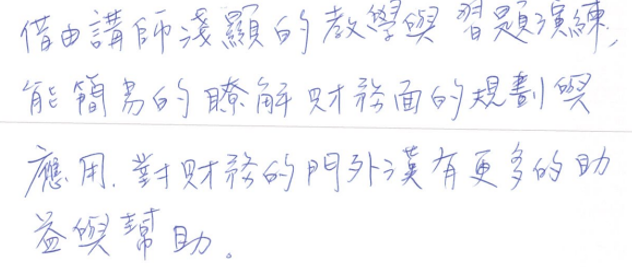 借由講師淺顯的教學與習題演練,
能簡易的瞭解財務面的規劃與
應用.對財務的門外漢有更多的助
益與幫助。